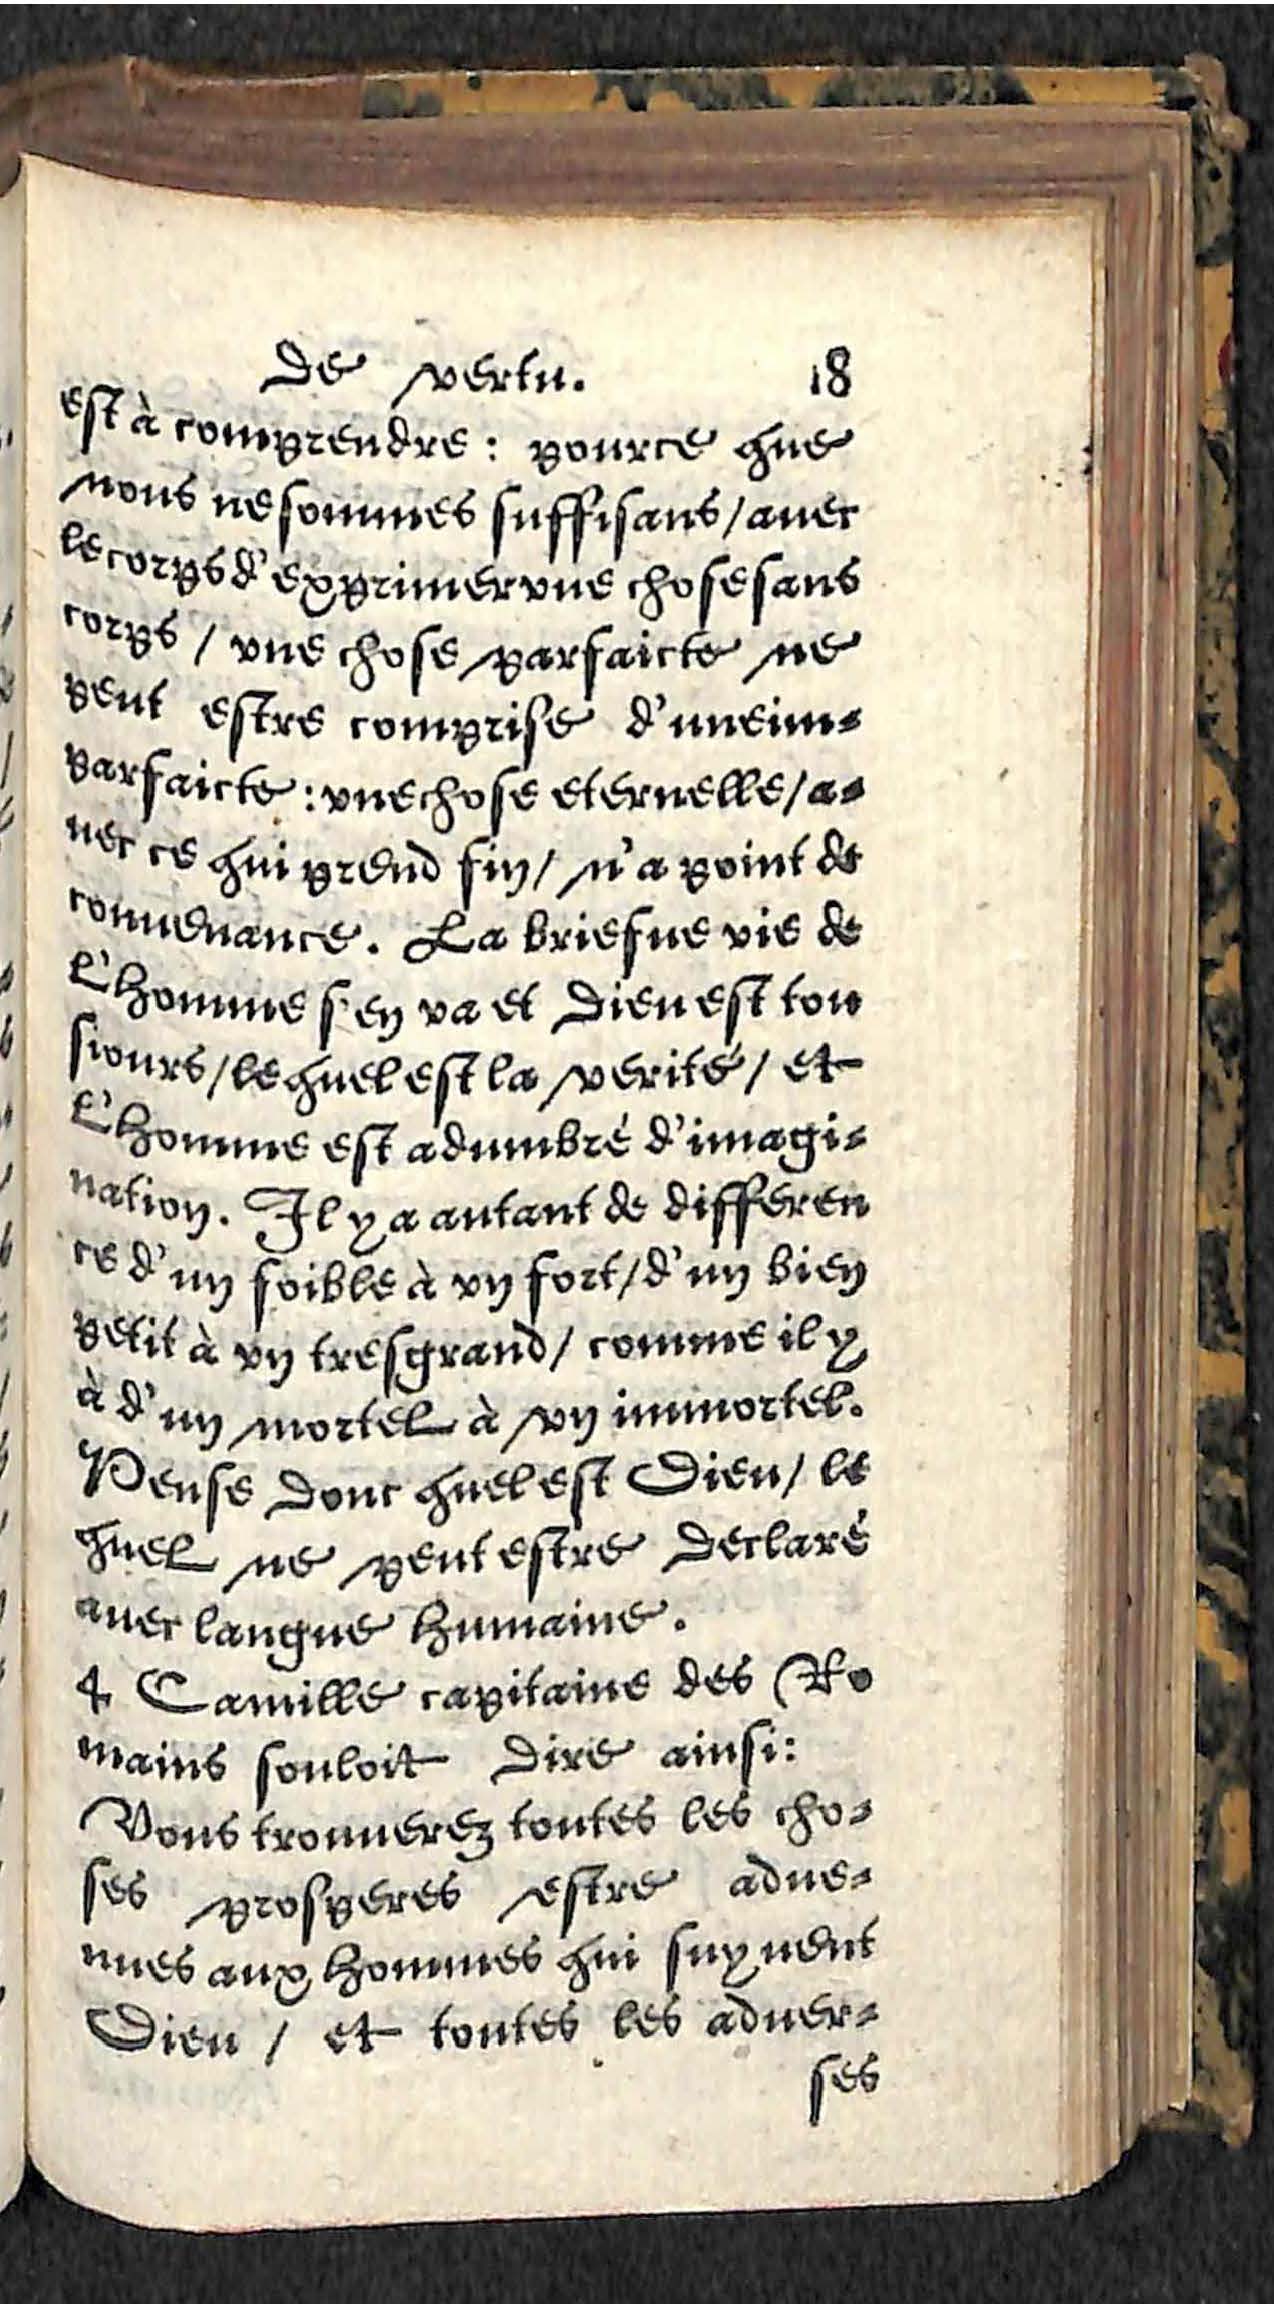 De vertu. 18
est à comprendre : pource que
nous ne sommes suffisans / auec
le corps d'exprimer vne chose sans
corps / vne chose parfaicte ne
peut estre comprise d'vne im-
parfaicte : vne chose eternelle / a-
uec ce qui prend fin / n'a point de
conuenance. La briefue vie de
l'homme s'en va et Dieu est tou
siours / lequel est la verité / et
l'homme est adumbré d'imagi-
nation. Il y a autant de differen
ce d'un foible à vn fort / d'un bien
petit à vn tresgrand / comme il y
à d'un mortel à vn immortel.
Pense donc quel est Dieu / le
quel ne peut estre declaré
auec langue humaine.
4 Camille capitaine des Ro
mains souloit dire ainsi:
Vous trouuerez toutes les cho-
ses prosperes estre adue-
nues aux hommes qui suyuent
Dieu / et toutes les aduer-
ses